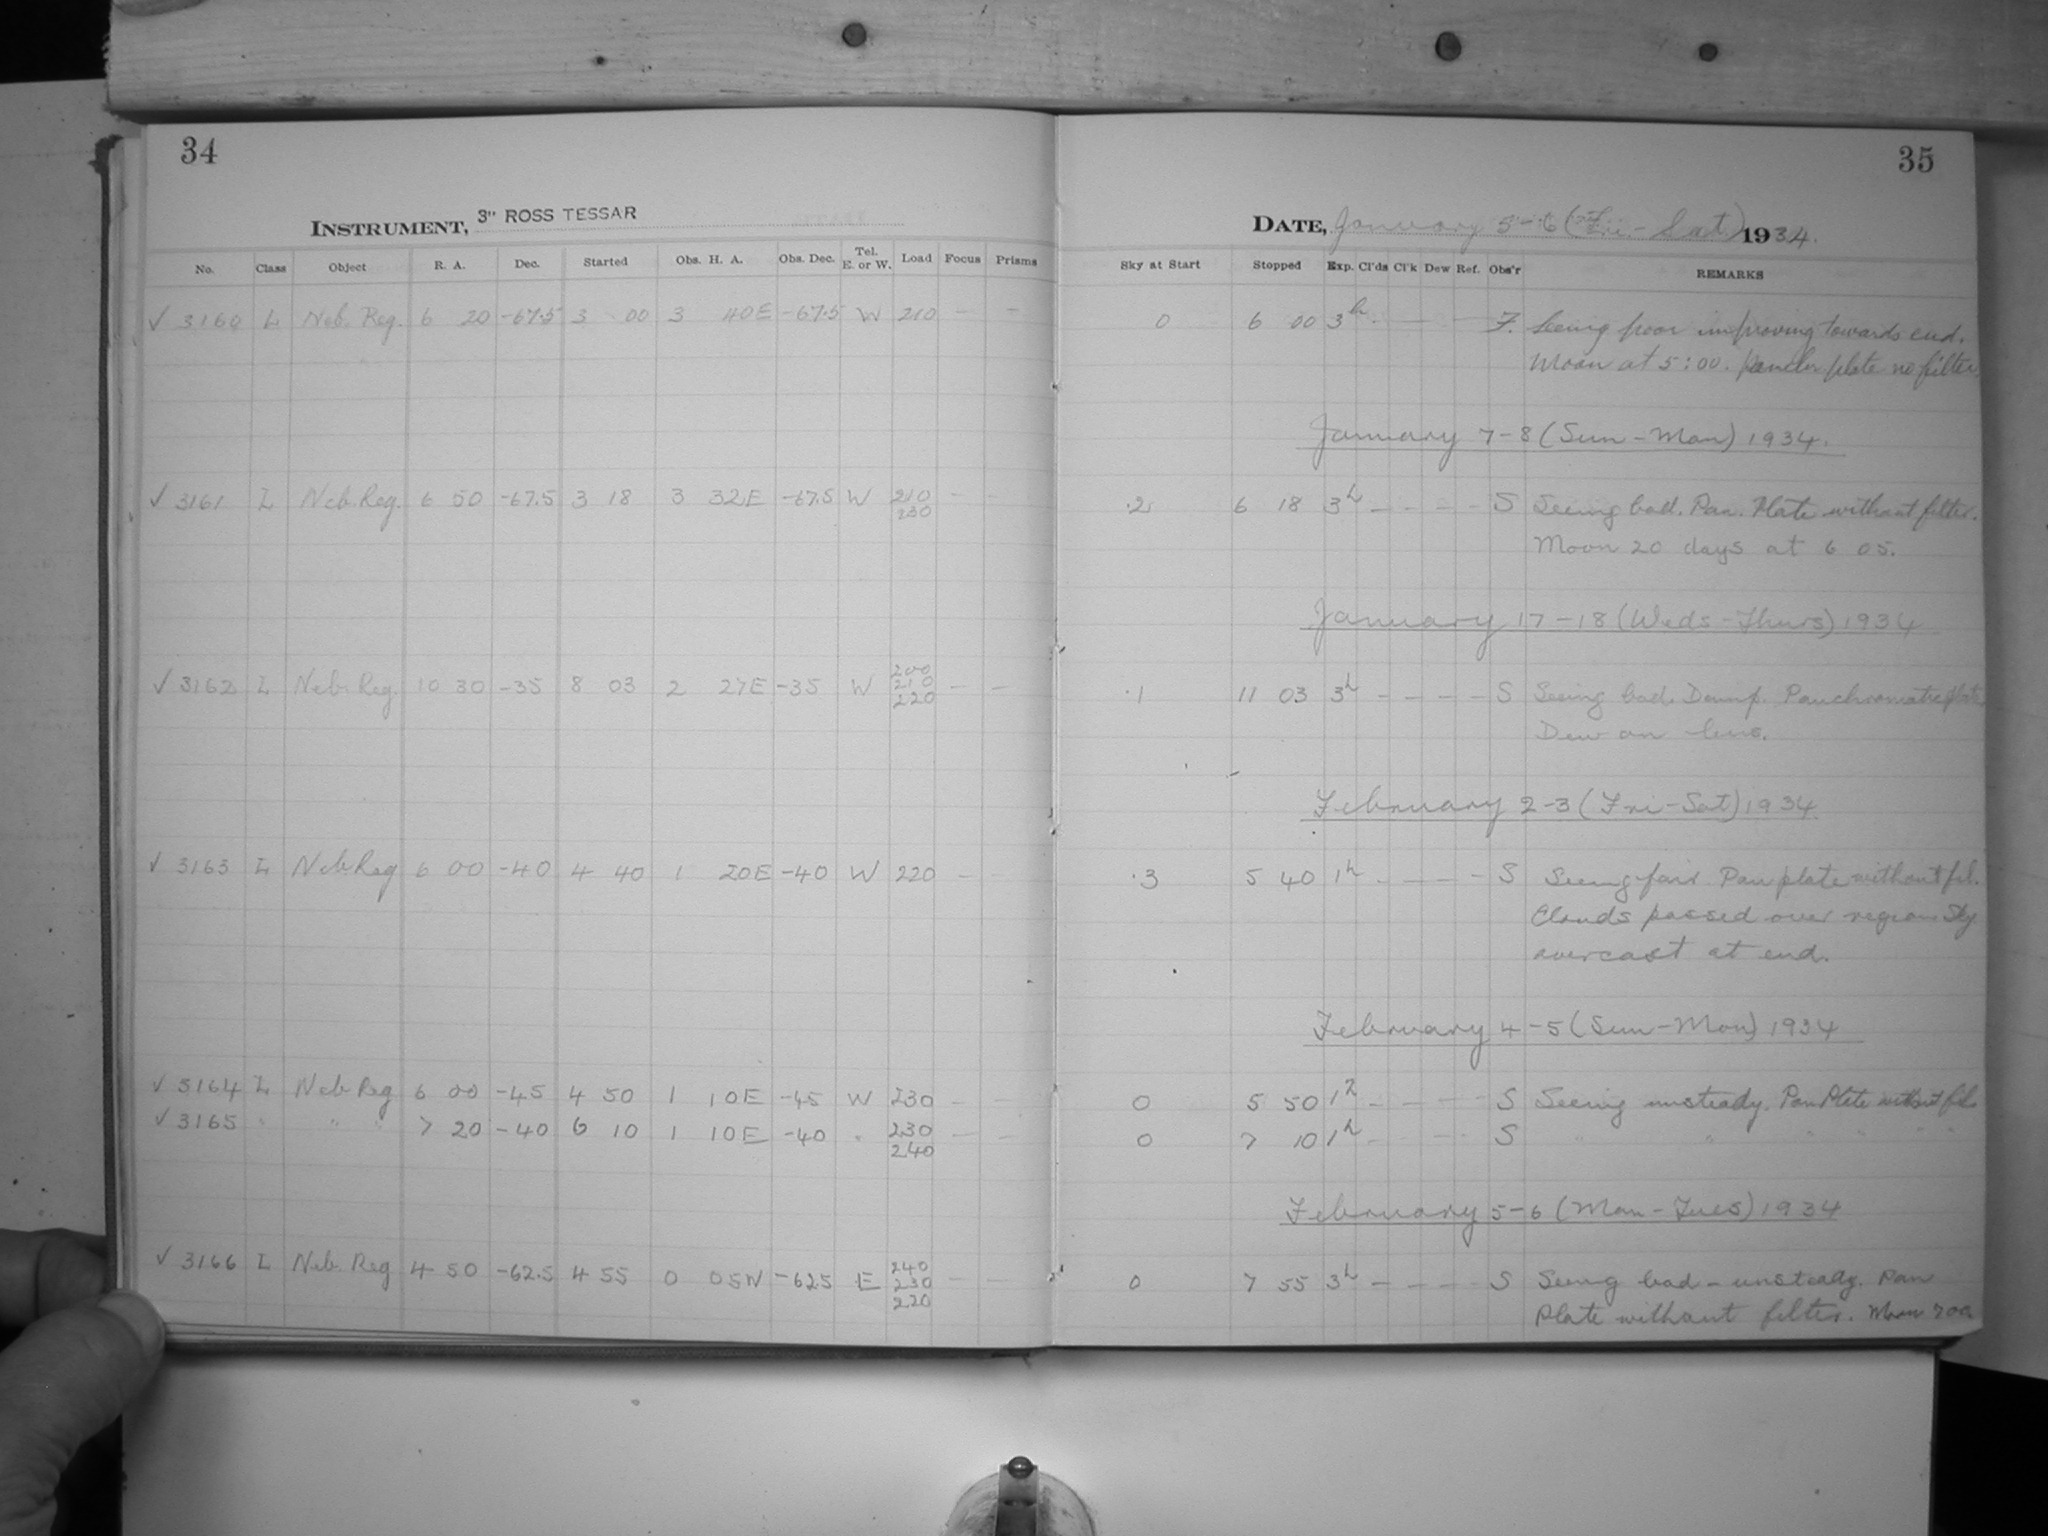 34
INSTRUMENT, 3" ROSS TESSAR
No. Class Object R. A. Dec. Started Obs. H. A. Obs. Dec. Tel. E. or W. Load Focus Prisms
✓ 3160 L Neb. Reg. 6 20 -67.5 3 00 3 40E -67.5 W 210 - -
✓ 3161 L Neb. Reg. 6 50 -67.5 3 18 3 32E -67.5 W 210 - -
230
200
✓ 3162 L Neb. Reg. 10 30 -35 8 03 2 27E -35 W 210 - -
220
✓ 3163 L Neb Reg 6 00 -40 4 40 1 20E -40 W 220 - -
✓ 3164 L Neb Reg 6 00 -45 4 50 1 10E -45 W 230 - -
✓ 3165 " " " 7 20 -40 6 10 1 10E -40 " 230 - -
240
240
✓ 3166 L Neb. Reg 4 50 -62.5 4 55 0 05W -62.5 E 230 - -
220
35
DATE, January 5-6 (Fri - Sat) 1934.
Sky at Start Stopped Exp. Cl'ds Cl'k Dew Ref. Obs'r REMARKS
0 6 00 3h - - - F. Seeing poor improving towards end.
Moon at 5:00. panchr plate no filter
January 7-8 (Sun - Mon) 1934.
.2 6 18 3h - - - - S Seeing bad. Pan. Plate without filter.
Moon 20 days at 6 05.
January 17-18 (Weds - Thurs) 1934
.1 11 03 3h - - - - S Seeing bad. Damp. Panchromatic plate
Dew on lens.
February 2-3 (Fri - Sat) 1934
.3 5 40 1h - - - - S Seeing fair. Pan plate without fil.
Clouds passed over region Sky
overcast at end.
February 4-5 (Sun - Mon) 1934
0 5 50 1h - - - - S Seeing unsteady. Pan Plate without fil.
0 7 10 1h - - - - S " " " " " "
February 5-6 (Mon - Tues) 1934
0 7 55 3h - - - - S Seeing bad - unsteady. Pan
Plate without filter. Moon